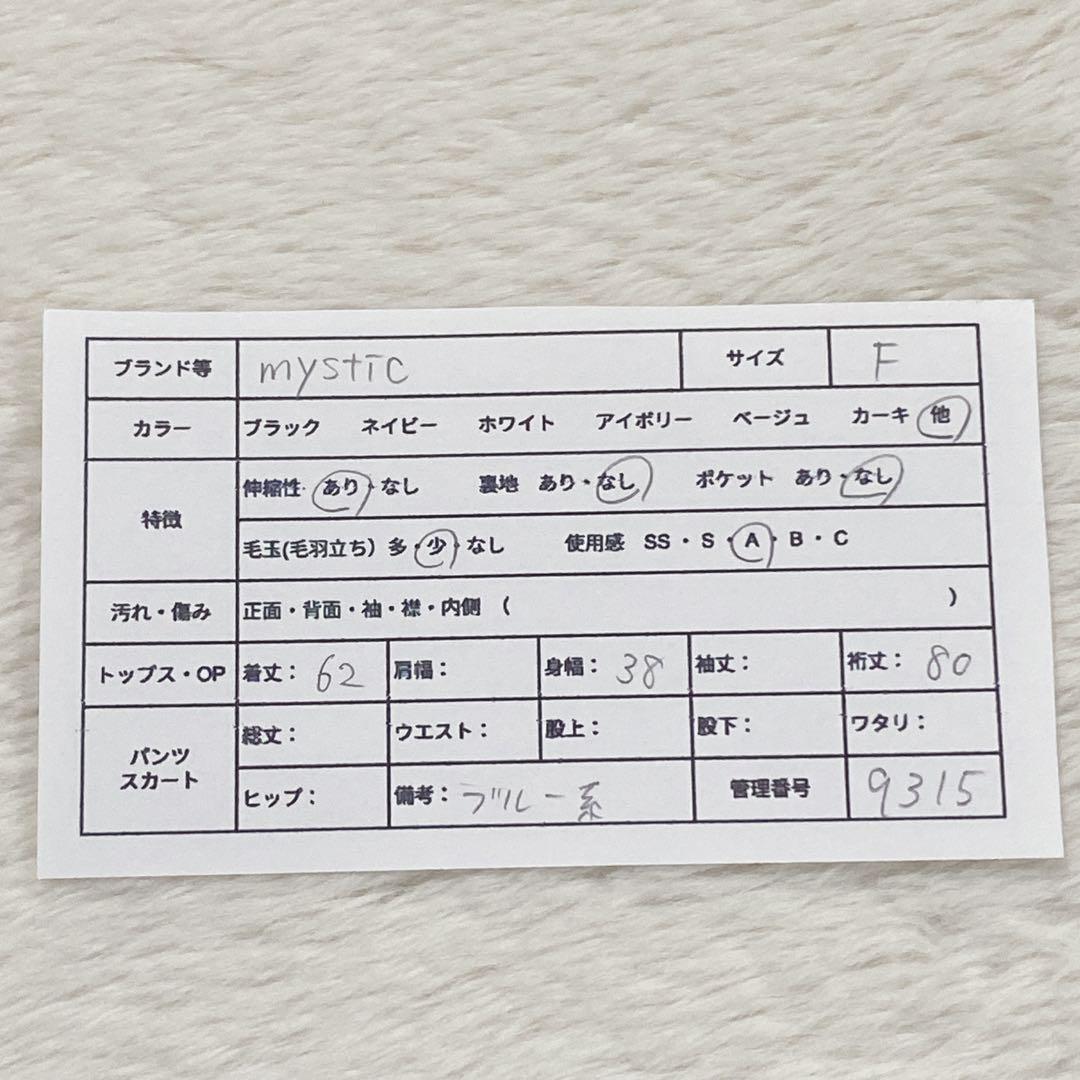 ブランド等 mystic サイズ F
カラー ブラック ネイビー ホワイト アイボリー ベージュ カーキ 他
特徴 伸縮性・あり・なし 裏地 あり・なし ポケット あり・なし
毛玉(毛羽立ち) 多・少・なし 使用感 SS・S・A・B・C
汚れ・傷み 正面・背面・袖・襟・内側 ( )
トップス・OP 着丈：62 肩幅： 身幅：38 袖丈： 裄丈：80
パンツ
スカート
総丈： ウエスト： 股上： 股下： ワタリ：
ヒップ： 備考：ブルー系 管理番号 9315